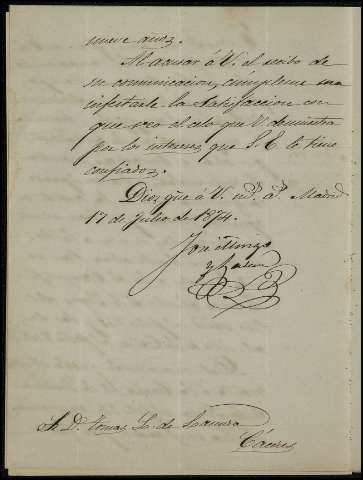 nueve años.
Al acusar á V. el recibo de
su comunicacion, cúmpleme ma
nifestarle la satisfaccion con
que veo el celo que V. demuestra
por los intereses que S. E. le tiene
confiados.
Dios gue á V. ms. as. Madrid
17 de Julio de 1874.
José
y
Sr. D. Tomas L. de
Cáceres